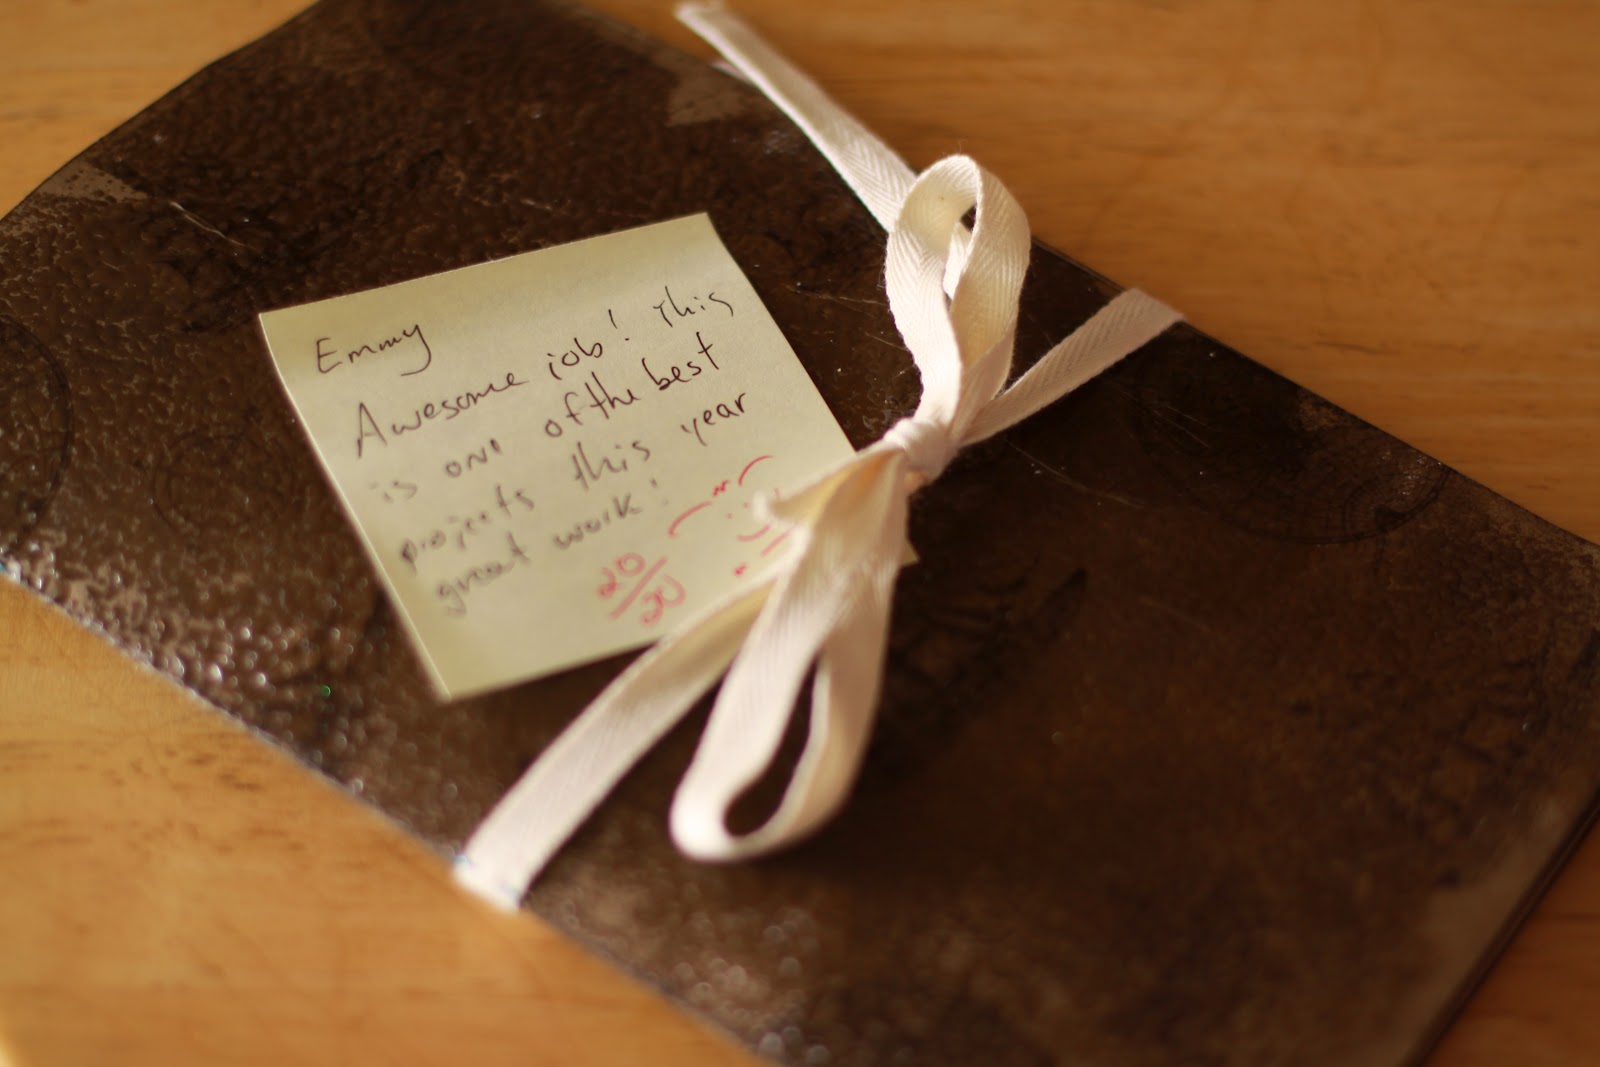 Emmy
Awesome job! This
is one of the best
projects this year
great work!
20/20